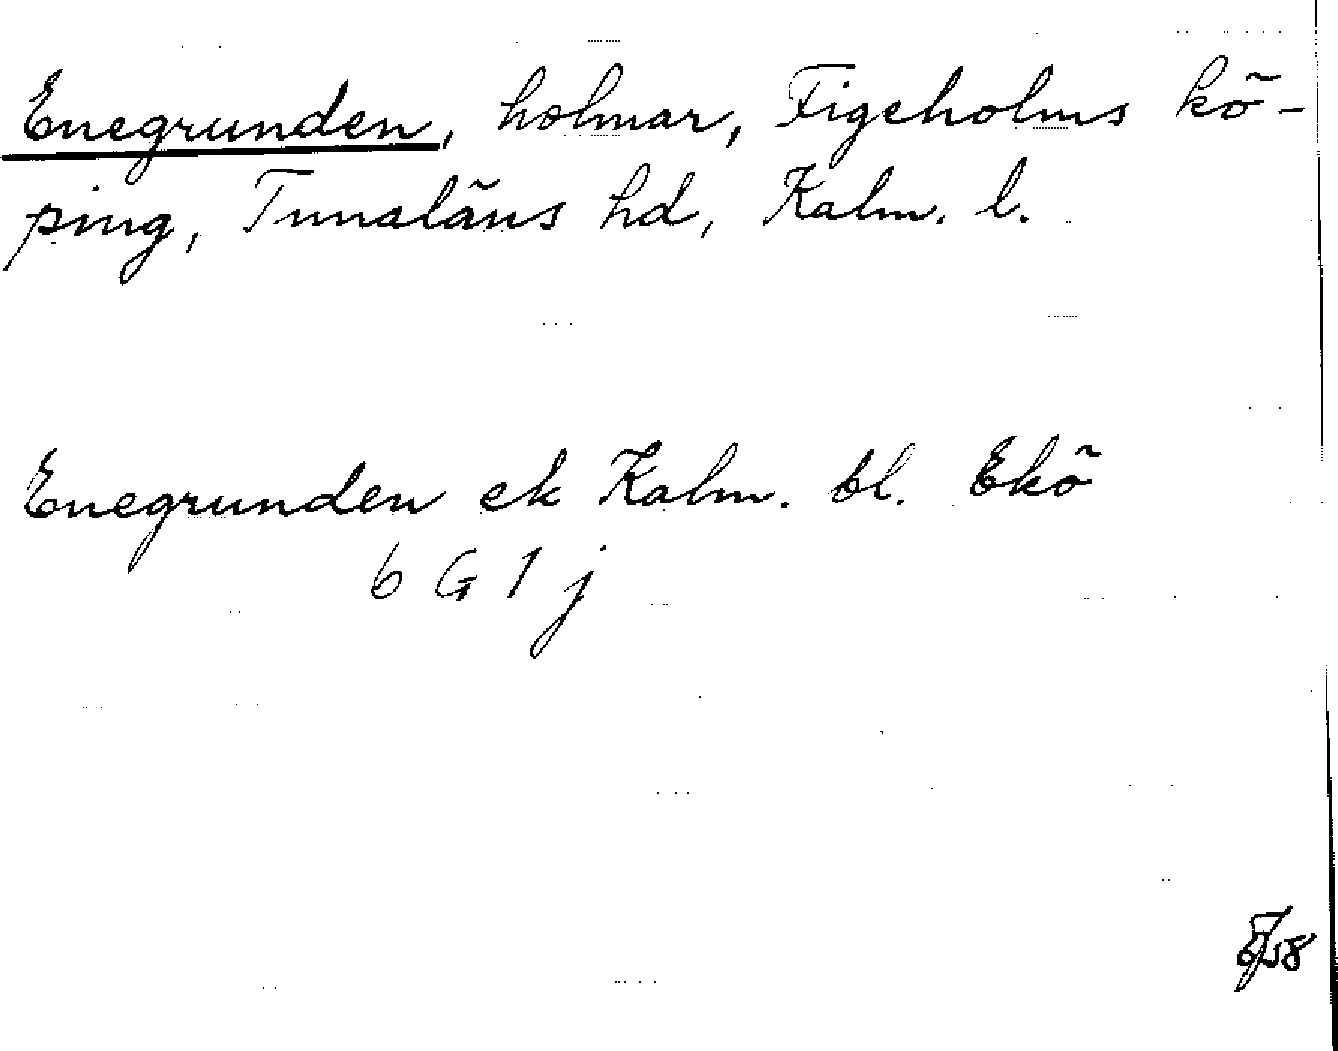 Enegrunden, holmar, Figeholms kö-
ping, Tunaläns hd, Kalm. l.
Enegrunden ek Kalm. bl. Ekö
6 G 1 j